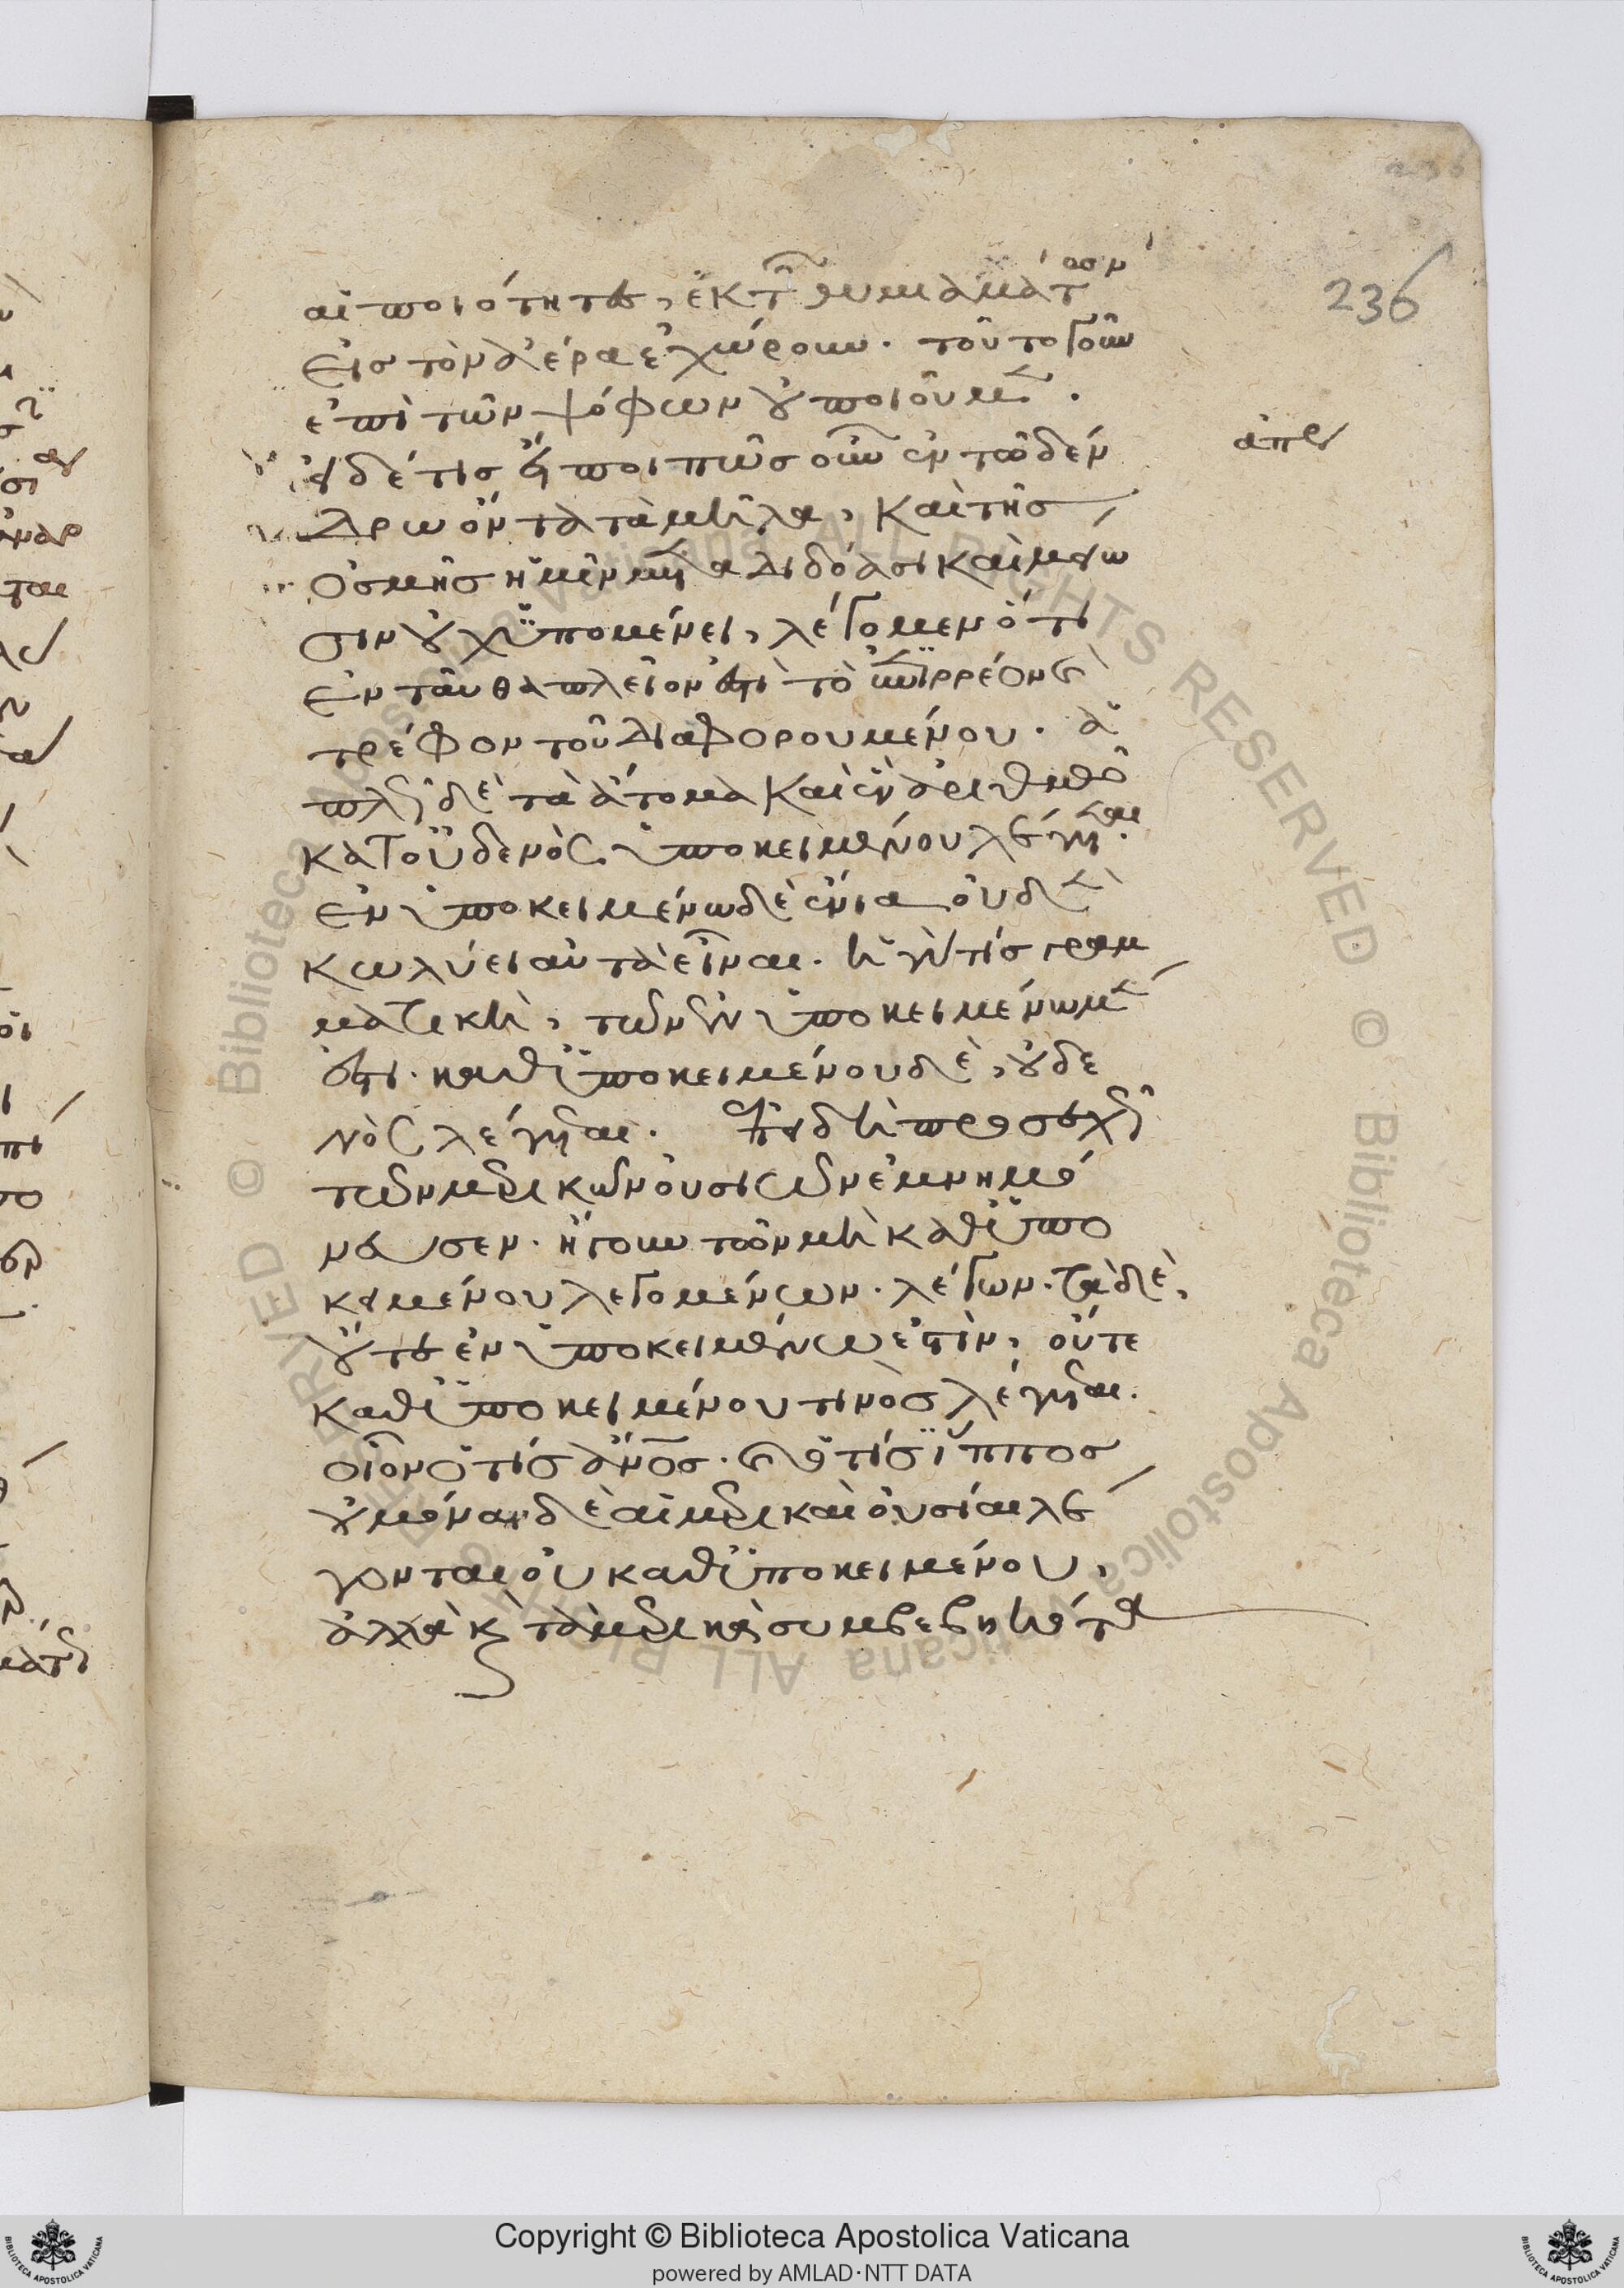 236
αἱ ποιότητες, ἐκ τ θυμιαμάτ
εἰς τὸν ἀέρα ἐχώρουν. τοῦτο γοῦν
ἐπὶ τῶν ψόφων οὐ ποιοῦμ.
εἰ δέ τις εἴποι πῶς οὖν ἐν τῶ δέν
ἀπει
δρω ὄντα τὰ μῆλα, καὶ τῆς
ὀσμῆς ἡμῖν μεταδιδόασι καὶ μείω
σιν οὐχ ὑπομένει, λέγομεν ὅτι
ἐνταῦθα πλεῖον ἐστι τὸ ἐπιρρέον καὶ
τρέφον τοῦ διαφορουμένου. ἁ
πλῶς δὲ τὰ ἄτομα καὶ ἓν ἀριθμῶ
κατ οὐδενὸς ὑποκειμένου λέγεται.
ἐν ὑποκειμένω δὲ ἔνια οὐδὲν
κωλύει αὐτὰ εἶναι. ἡ γάρ τίς γραμ
ματικὴ, τῶν ἐν ὑποκειμένω μέν
ἐστι. καθ ὑποκειμένου δὲ, οὐδε
νὸς λέγεται. ἐπειδὴ προσεχῶς
τῶν μερικῶν οὐσιῶν ἐμνημό
νευσεν. ἤγουν τῶν μὴ καθ ὑπο
κειμένου λεγομένων. λέγων. τὰ δὲ,
οὔτε ἐν ὑποκειμένω ἐστὶν, οὔτε
καθ ὑποκειμένου τινὸς λέγεται.
οἷον ὁ τίς ἄνος. καὶ ὁ τίς ἵππος
οὐ μόναι δὲ αἱ μερικαὶ οὐσίαι λέ
γονται οὐ καθ ὑποκειμένου,
ἀλλὰ καὶ τὰ μερικὰ συμβεβηκότα
Copyright © Biblioteca Apostolica Vaticana
powered by AMLAD·NTT DATA